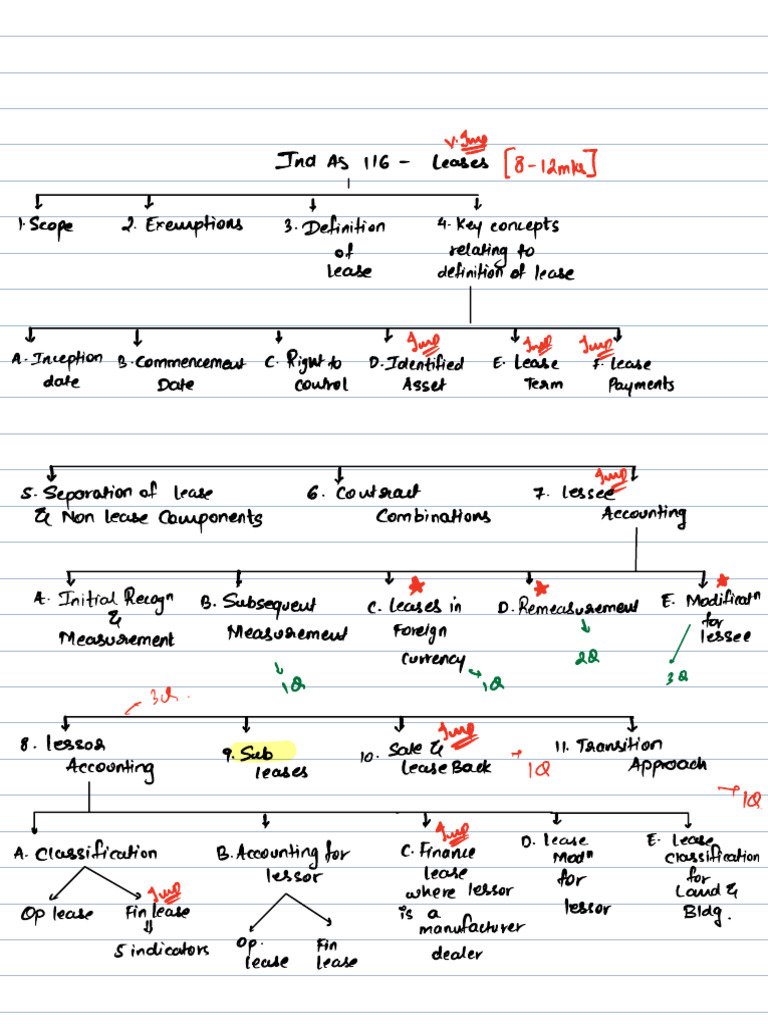 V. Imp
Ind AS 116 - Leases [8-12mks]
1. Scope 2. Exemptions 3. Definition of lease 4. Key concepts relating to definition of lease
Imp Imp Imp
A. Inception date B. Commencement Date C. Right to control D. Identified Asset E. Lease Term F. Lease Payments
Imp
5. Separation of lease & Non Lease Components 6. Contract Combinations 7. lessee Accounting
A. Initial Recogn & Measurement B. Subsequent Measurement C. Leases in Foreign currency D. Remeasurement E. Modificatn for lessee
1Q 1Q 2Q 3Q
3Q.
Imp
8. lessor Accounting 9. Sub leases 10. Sale & Lease Back 11. Transition Approach
1Q 1Q
Imp
A. Classification B. Accounting for lessor C. Finance lease where lessor is a manufacturer dealer D. Lease Modn for lessor E. Lease classification for Land & Bldg.
Imp
Op lease Fin lease
5 indicators
Op. lease Fin lease